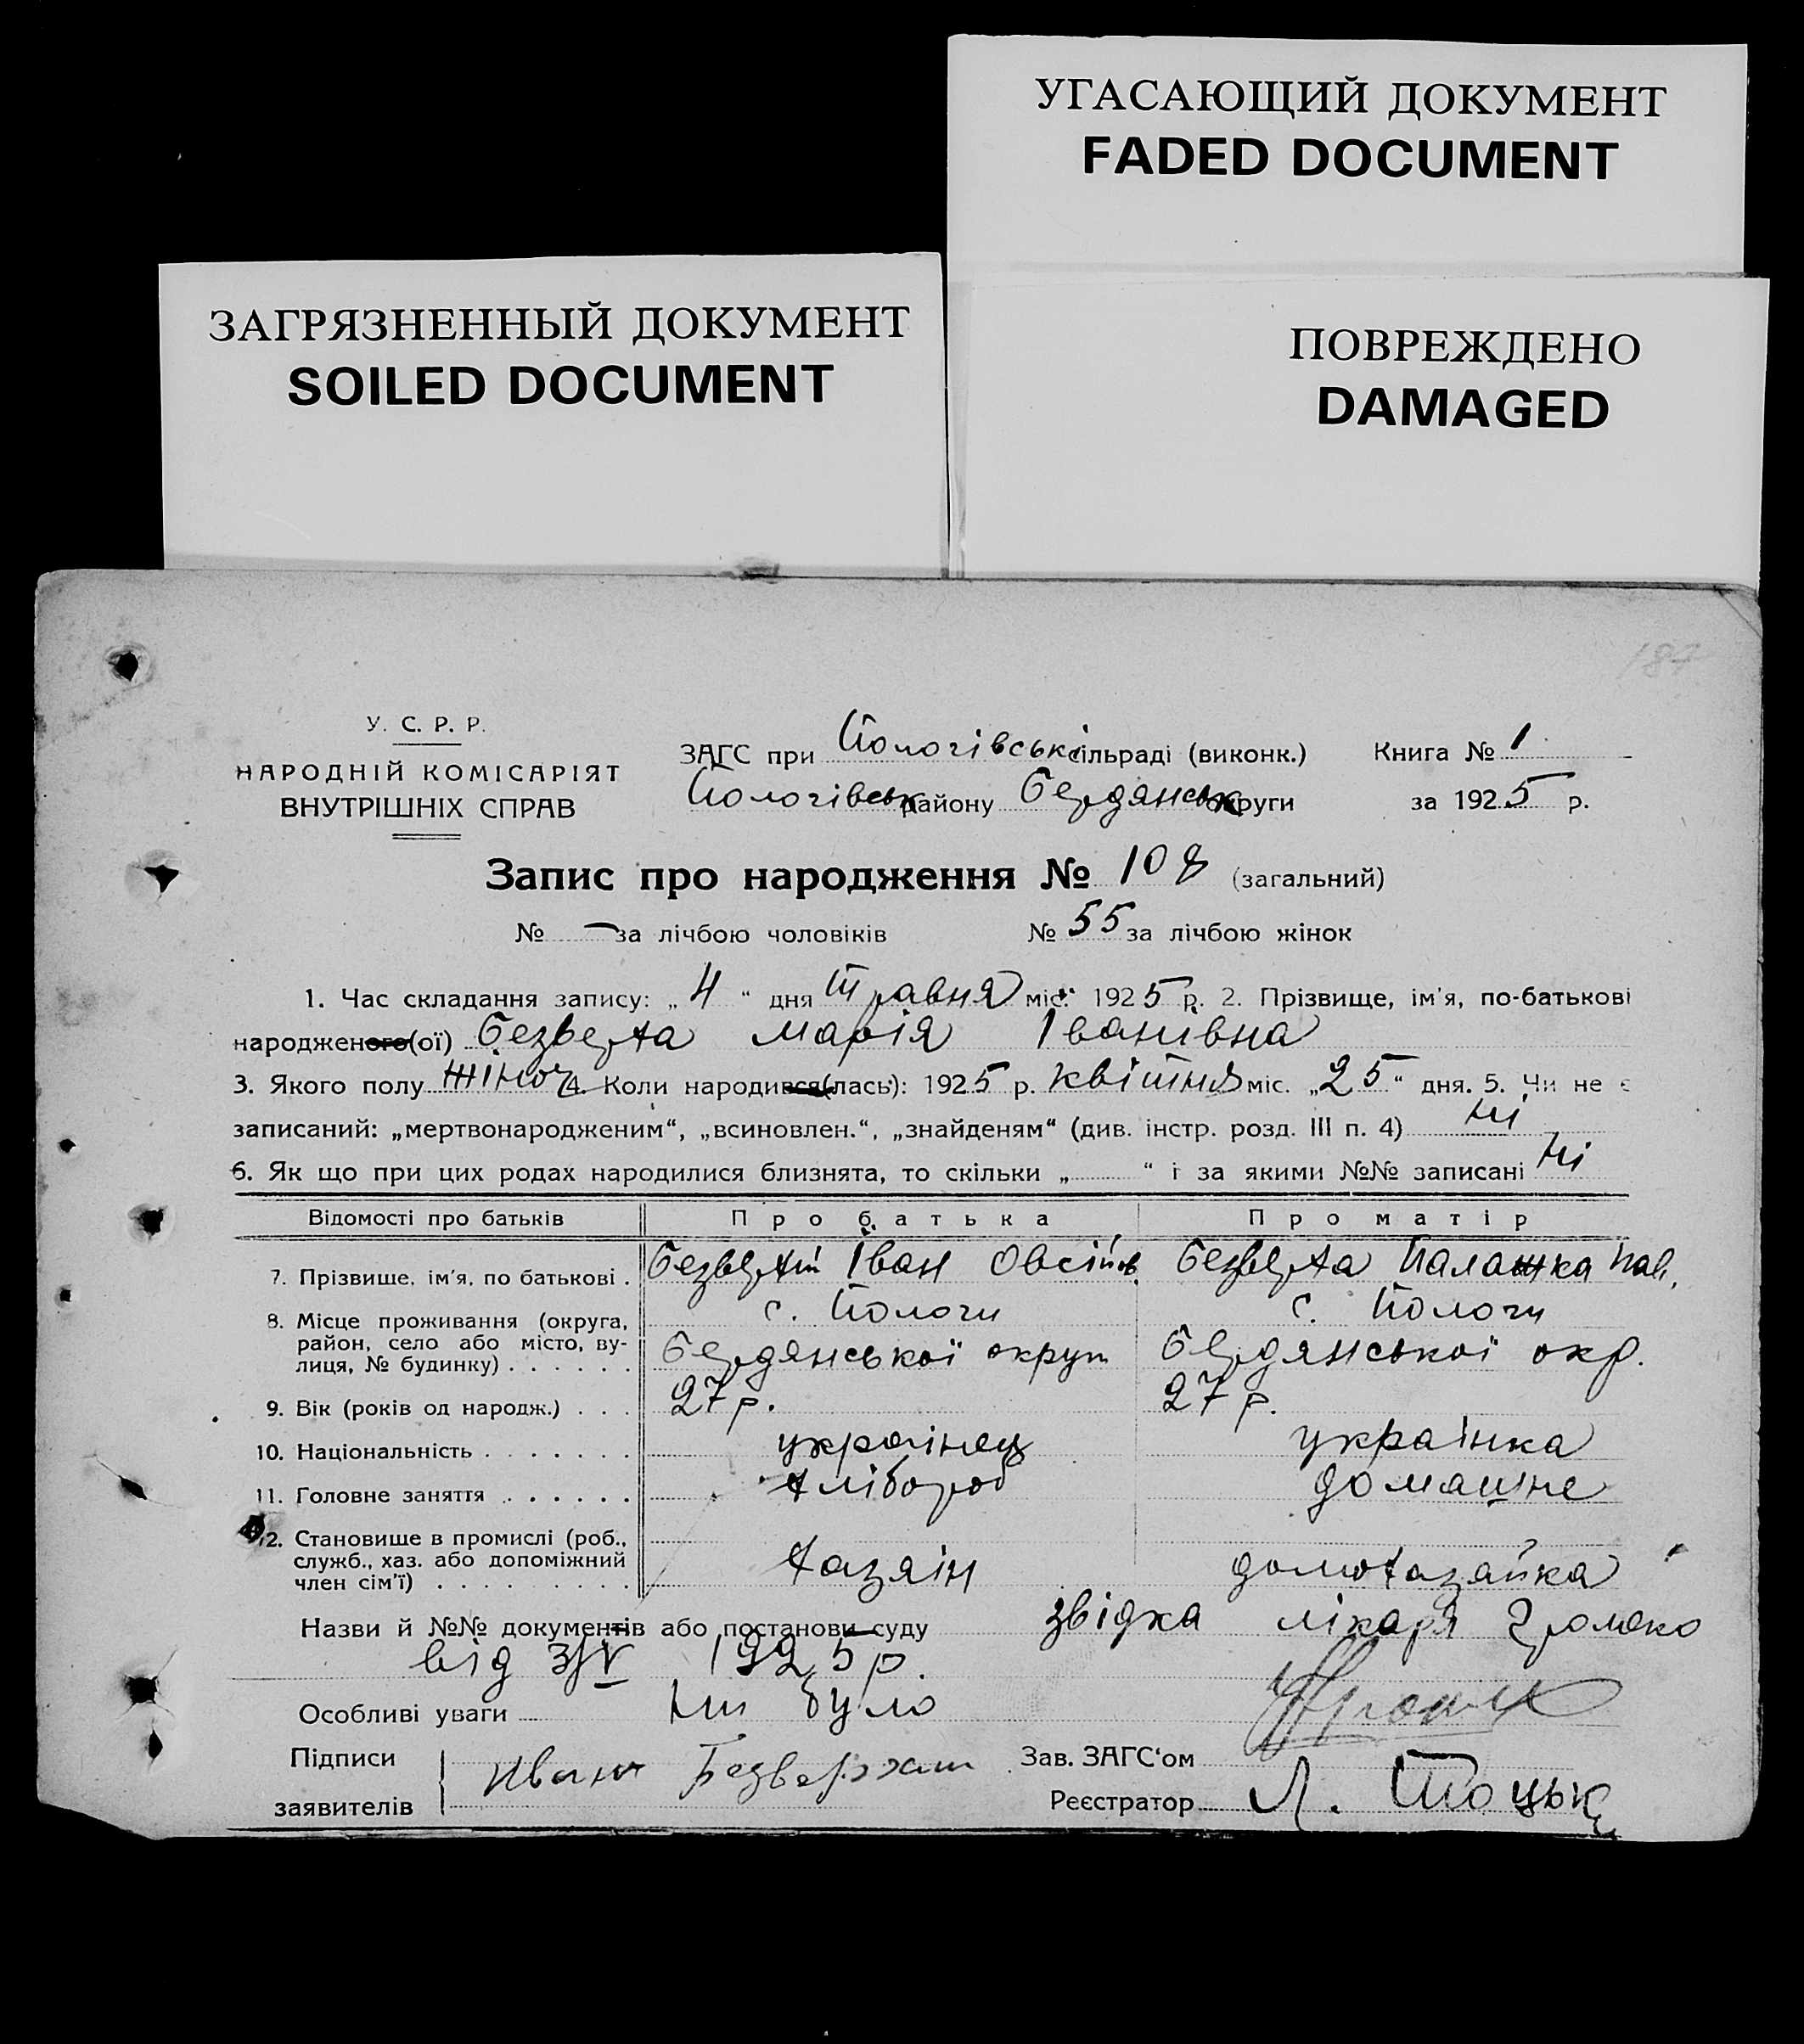 УГАСАЮЩИЙ ДОКУМЕНТ
FADED DOCUMENT
ЗАГРЯЗНЕННЫЙ ДОКУМЕНТ
SOILED DOCUMENT
ПОВРЕЖДЕНО
DAMAGED
187
У. С. Р. Р.
НАРОДНІЙ КОМІСАРІЯТ
ВНУТРІШНІХ СПРАВ
ЗАГС при Пологівськ сільраді (виконк.) Книга № 1
Пологівськ району Бердянськ округи за 1925 р.
Запис про народження № 108 (загальний)
№ — за лічбою чоловіків № 55 за лічбою жінок
1. Час складання запису: „4“ дня Травня міс. 1925 р. 2. Прізвище, ім'я, по-батькові
народженого(ої) Безверха Марія Іванівна
3. Якого полу жіноч 4. Коли народився(лась): 1925 р. квітня міс. „25“ дня. 5. Чи не є
записаний: „мертвонародженим“, „всиновлен.“, „знайденям“ (див. інстр. розд. III п. 4) ні
6. Як що при цих родах народилися близнята, то скільки „ “ і за якими №№ записані ні
Відомості про батьків Про батька Про матір
7. Прізвище, ім'я, по батькові . Безверхий Іван Овсійов. Безверха Палажка Пав.
8. Місце проживання (округа, район, село або місто, вулиця, № будинку) . . . . . . с. Пологи Бердянської округи с. Пологи Бердянської окр.
9. Вік (років од народж.) . . . 27 р. 27 р.
10. Національність . . . . . . . українець українка
11. Головне заняття . . . . . . хлібороб домашнє
12. Становище в промислі (роб., служб., хаз. або допоміжний член сім'ї) . . . . . . . . . хазяін домохазяйка
Назви й №№ документів або постанови суду звідка лікаря Громеко
від 3/V 1925 р.
Особливі уваги ни було
Підписи заявителів Иван Безверхий Зав. ЗАГС'ом
Реєстратор Л. Тоцьк